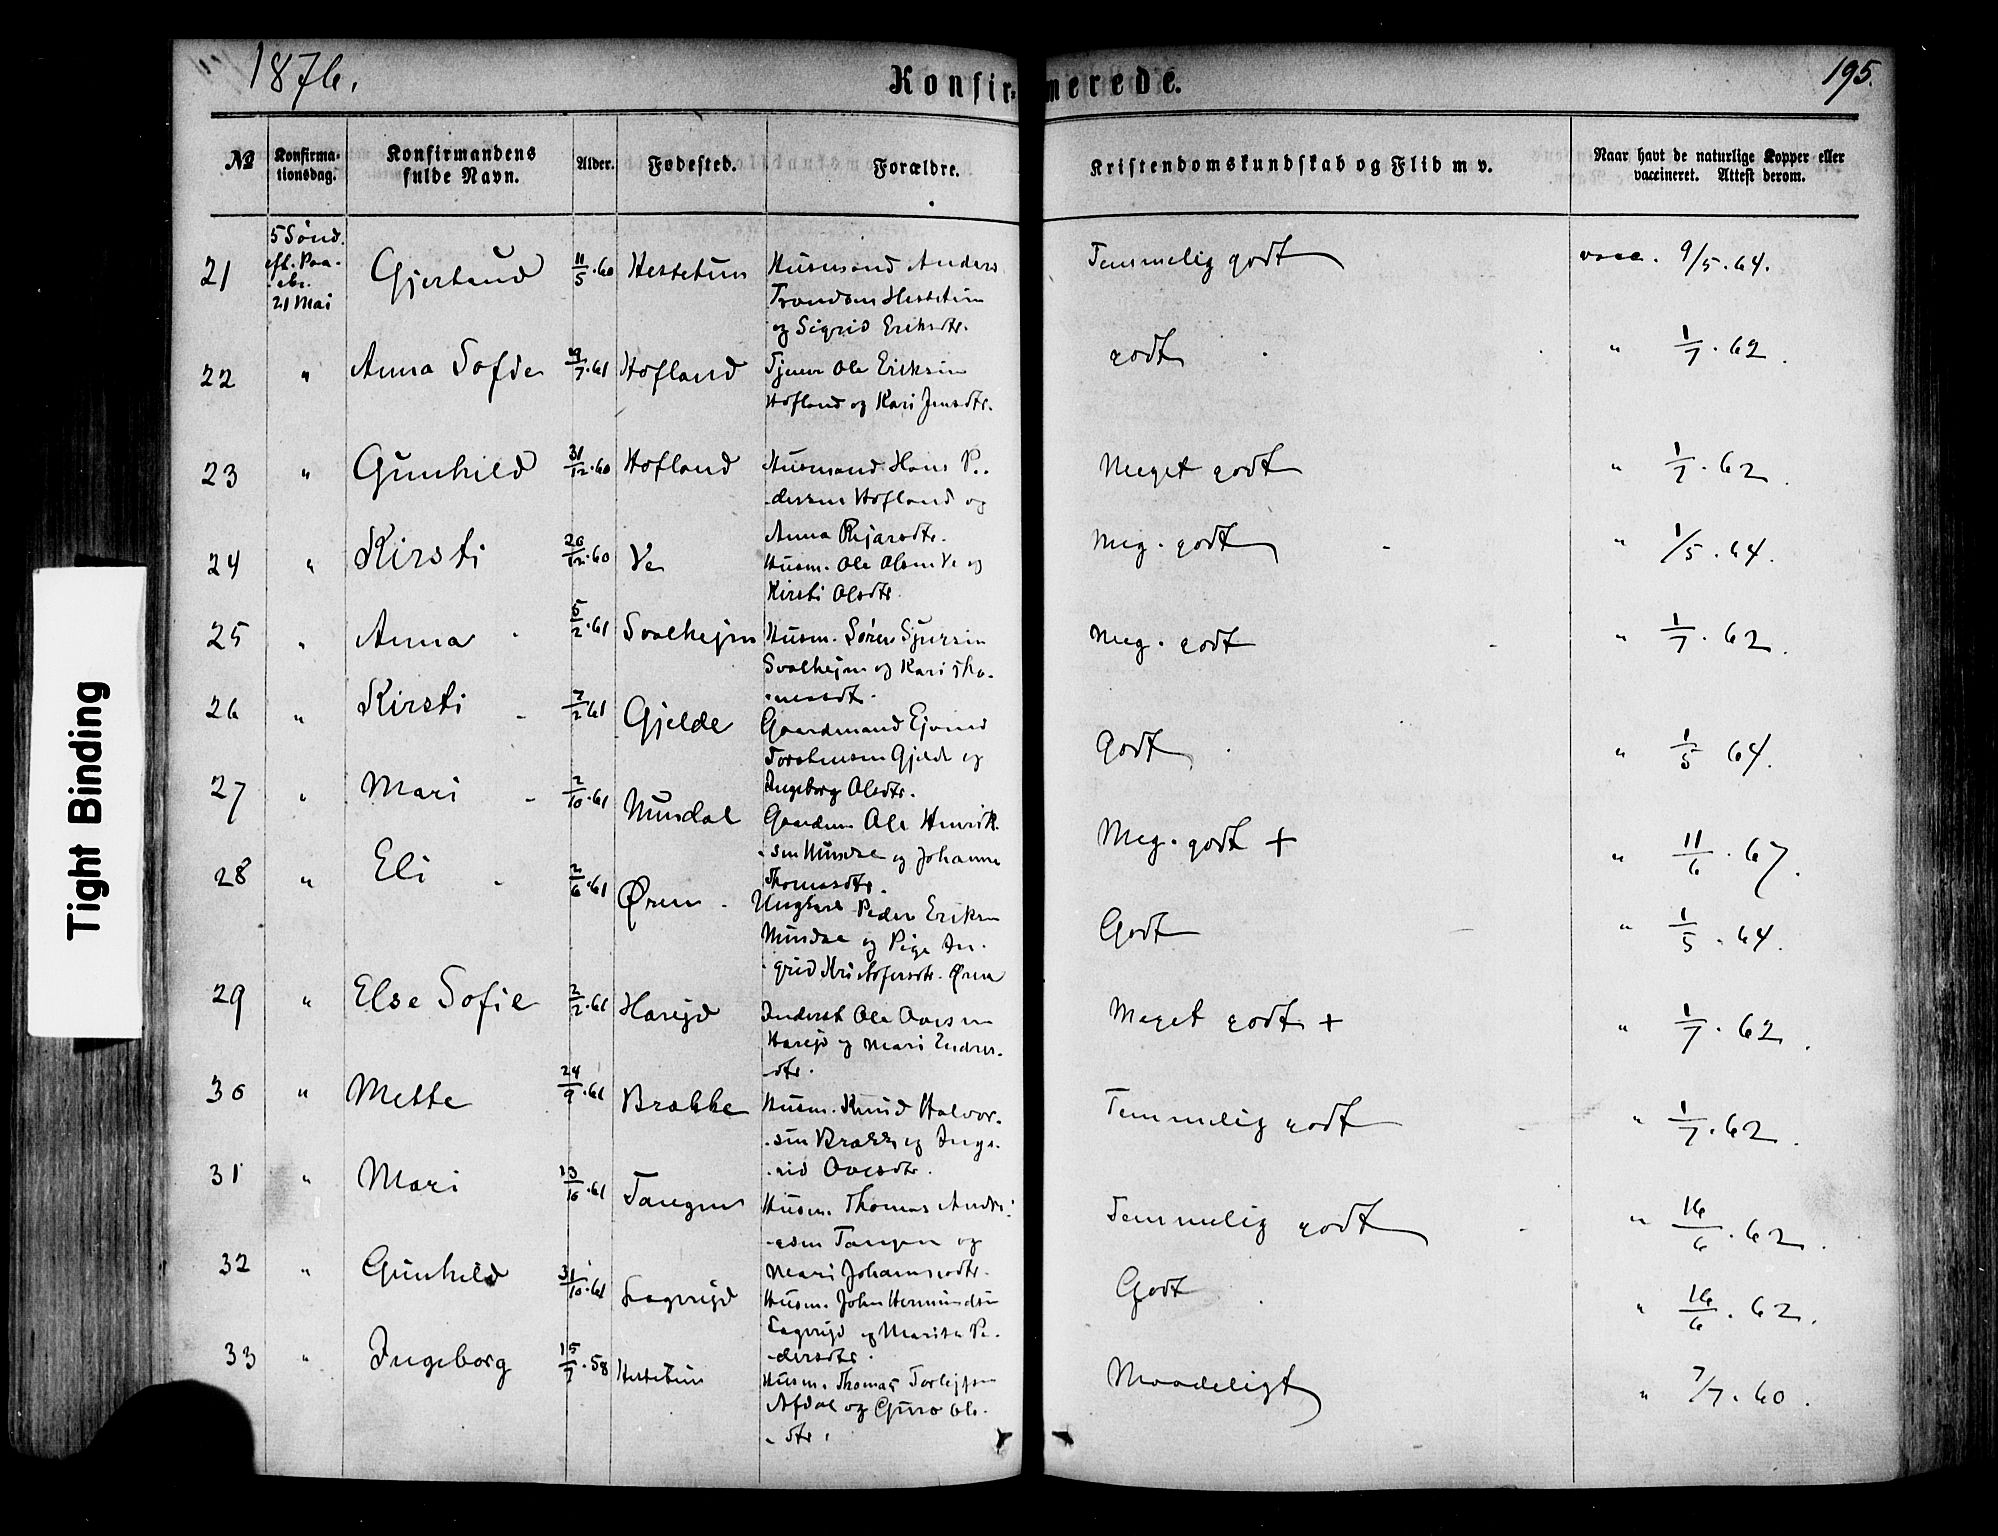 1876.
Konfir=
merede.
195.
Tight Binding
№ Konfirma-
tionsdag. Konfirmandens
fulde Navn. Alder. Fødested. Forældre. Kristendomskundskab og Flid m v. Naar havt de naturlige Kopper eller
vaccineret. Attest derom.
21 5 Sønd.
eft. Paa-
ske.
21 Mai Gjertrud 11/5.60 Hestetun Husmand Anders
Trondsen Hestetun
og Sigrid Eriksdtr. Temmelig godt vacc. 9/5.64.
22 " Anna Sofie 19/7.61 Hofland Tjener Ole Eriksen
Hofland og Kari Jensdtr. godt " 1/7.62.
23 " Gunhild 31/12.60 Hofland Husmand Hans Pe-
dersen Hofland og
Anna Meget godt " 1/7.62.
24 " Kirsti 20/12.60 Ve Husm. Ole Olsen Ve og
Kirsti Olsdtr. Meg. godt " 1/5.64.
25 " Anna 5/2.61 Svalhejm Husm. Søren Sjursen
Svalhejm og Kari Tho-
masdt. Meg. godt " 1/7.62.
26 " Kirsti 7/2 61 Gjelde Gaardmand Ejvind
Torstensen Gjelde og
Ingeborg Olsdtr. Godt " 1/5 64.
27 " Mari 2/10.61 Mundal Gaardm. Ole Henrik-
sen og Johanne
Thomasdtr. Meg. godt + " 11/6.67.
28 " Eli 2/6.61 Øren Ungkarl Peder Eriksen
og Pige In-
grid Kristofersdtr. Øren Godt " 1/5.64.
29 " Else Sofie 2/2.61 Harejd Inderst Ole Ovesen
Harejd og Mari Endres-
dtr. Meget godt + " 1/7.62.
30 " Mette 24/9.61 Brække Husm. Knud Halvor-
sen Brække og Inge-
rid Ovesdtr. Temmelig godt " 1/7.62.
31 " Mari 13/10.61 Tangen Husm. Thomas Andre-
asen Tangen og
Mari Johannesdtr. Temmelig godt " 16/6.62.
32 " Gunhild 31/10.61 Husm. John Hermundsen
og Marita Pe-
dersdtr. Godt " 16/6.62.
33 " Ingeborg 15/7.58 Hestetun Husm. Thomas Torlejfsen
Afdal og Guro Ols-
dtr. Maadeligt " 7/7.60.